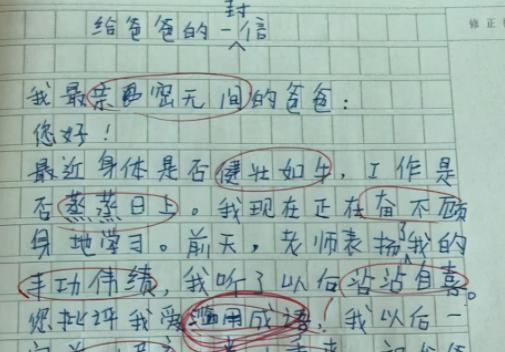 给爸爸的一封信
修正
我最亲密无间的爸爸：
您好！
最近身体是否健壮如牛，工作是
否蒸蒸日上。我现在正在奋不顾
身地学习。前天，老师表扬了我的
丰功伟绩，我听了以后沾沾自喜。
您批评我爱滥用成语！我以后一